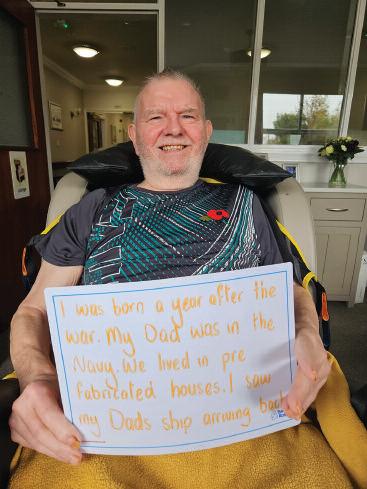 I was born a year after the
war. My Dad was in the
Navy. We lived in pre
fabricated houses. I saw
my Dads ship arriving back